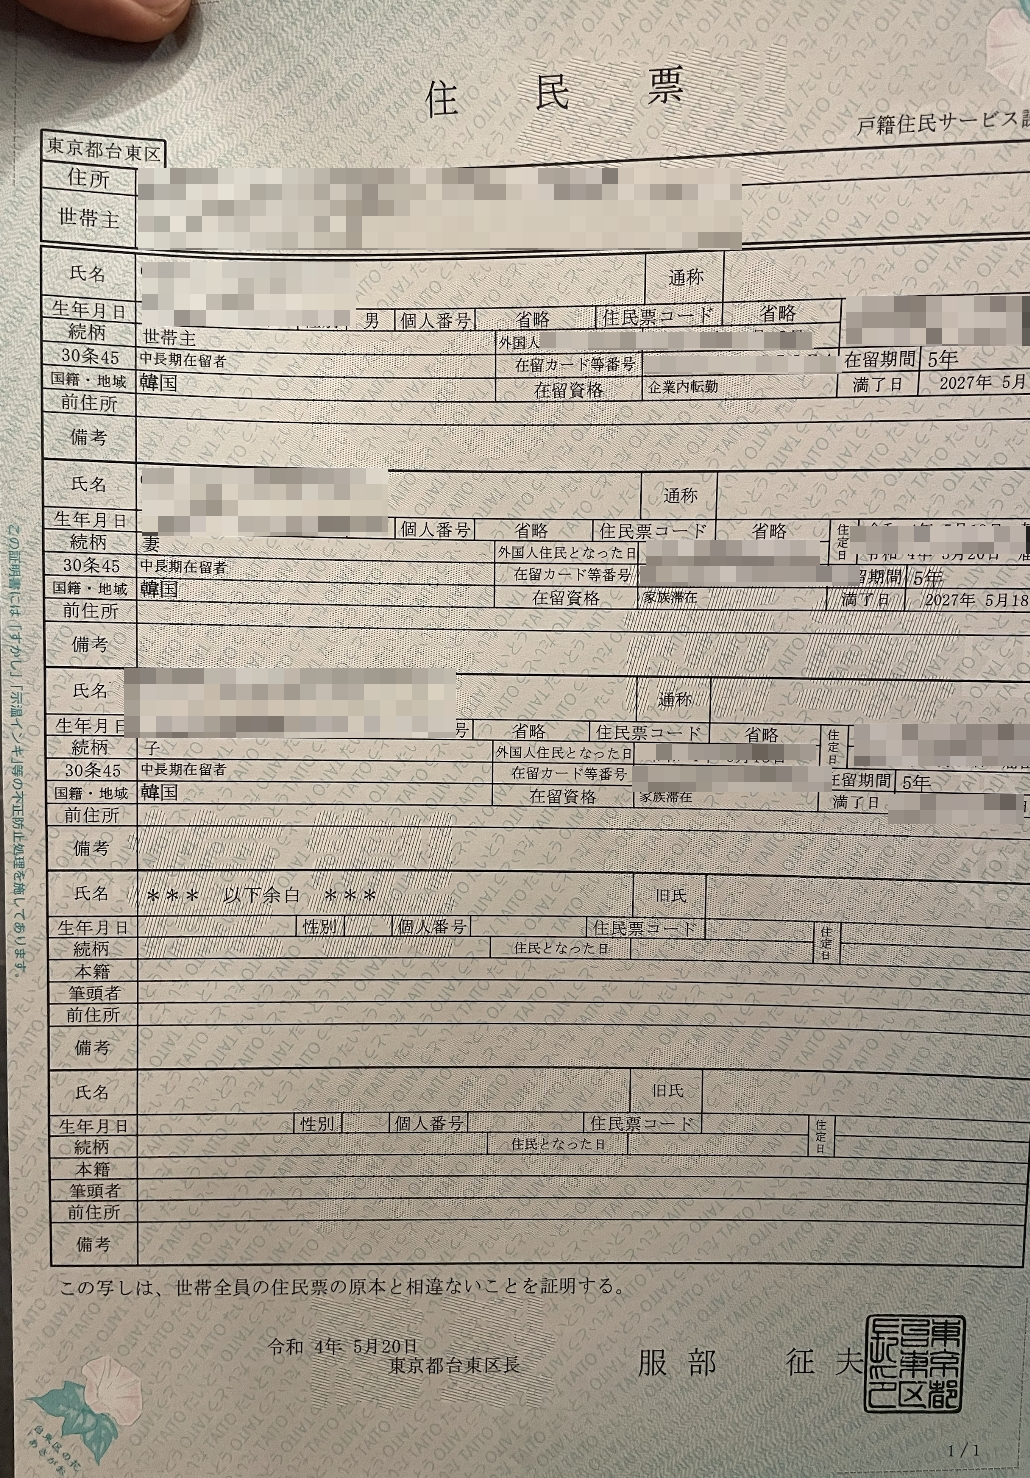 住民票
戸籍住民サービス
東京都台東区
住所
世帯主
氏名 通称
生年月日 男 個人番号 省略 住民票コード 省略
続柄 世帯主 外国人
30条45 中長期在留者 在留カード等番号 在留期間 5年
国籍・地域 韓国 在留資格 企業内転勤 満了日 2027年 5月
前住所
備考
氏名 通称
生年月日 個人番号 省略 住民票コード 省略 住定日
続柄 妻 外国人住民となった日
30条45 中長期在留者 在留カード等番号 留期間 5年
国籍・地域 韓国 在留資格 家族滞在 満了日 2027年 5月18
前住所
備考
氏名 通称
生年月日 号 省略 住民票コード 省略 住定日
続柄 子 外国人住民となった日
30条45 中長期在留者 在留カード等番号 在留期間 5年
国籍・地域 韓国 在留資格 家族滞在 満了日
前住所
備考
氏名 *** 以下余白 *** 旧氏
生年月日 性別 個人番号 住民票コード 住定日
続柄 住民となった日
本籍
筆頭者
前住所
備考
氏名 旧氏
生年月日 性別 個人番号 住民票コード 住定日
続柄 住民となった日
本籍
筆頭者
前住所
備考
この写しは、世帯全員の住民票の原本と相違ないことを証明する。
令和 4年 5月20日
東京都台東区長 服部 征夫
東京都台東区長之印
1/1
この証明書には「すかし」「示温インキ」等の不正防止処理を施してあります。
台東区の花
あさがお